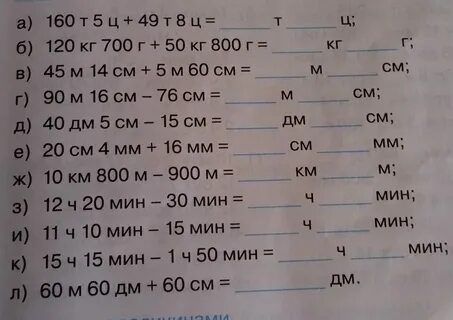 а) 160 т 5 ц + 49 т 8 ц = ______ т ______ ц;
б) 120 кг 700 г + 50 кг 800 г = ______ кг ______ г;
в) 45 м 14 см + 5 м 60 см = ______ м ______ см;
г) 90 м 16 см – 76 см = ______ м ______ см;
д) 40 дм 5 см – 15 см = ______ дм ______ см;
е) 20 см 4 мм + 16 мм = ______ см ______ мм;
ж) 10 км 800 м – 900 м = ______ км ______ м;
з) 12 ч 20 мин – 30 мин = ______ ч ______ мин;
и) 11 ч 10 мин – 15 мин = ______ ч ______ мин;
к) 15 ч 15 мин – 1 ч 50 мин = ______ ч ______ мин;
л) 60 м 60 дм + 60 см = ______ дм.